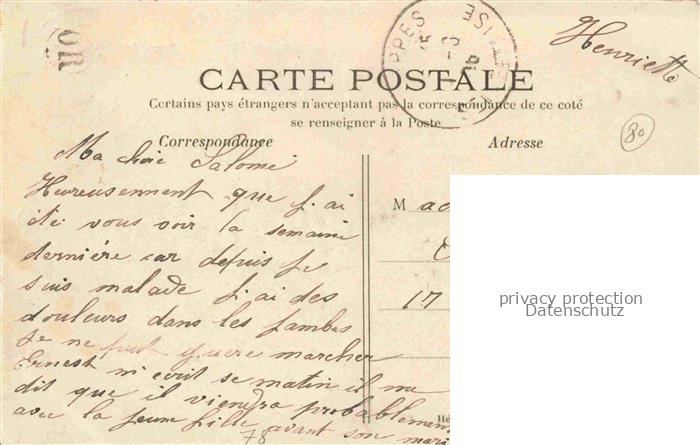 Henriette
OR
CARTE POSTALE
Certains pays étrangers n'acceptant pas la correspondance de ce coté
se renseigner à la Poste
80
Correspondance
Adresse
Ma chère Salomé
Heureusement que j'ai
été vous voir la semaine
dernière car depuis je
suis malade j'ai des
douleurs dans les jambes
je ne peut guere marcher
Ernest m'ecrit se matin il me
dit que il viendra probablement
avec la jeune fille avant son mari
78
M ad
17
privacy protection
Datenschutz